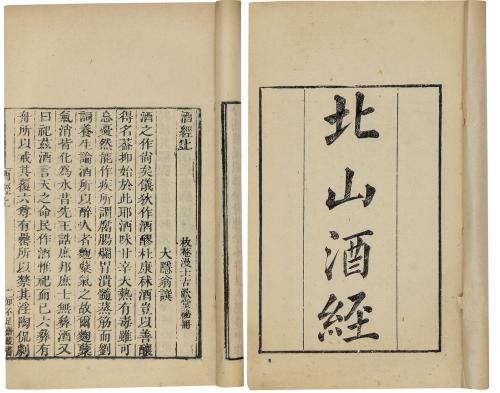 北山酒經
酒經上
枚菴漫士古歡堂秘冊
大隱翁譔
酒之作尚矣儀狄作酒醪杜康秫酒豈以善釀
得名蓋抑始於此耶酒味甘辛大熱有毒雖可
忘憂然能作疾所謂腐腸爛胃潰髓蒸筋而劉
詞養生論酒所以醉人者麴糵氣之故爾麴糵
氣消皆化為水昔先王誥庶邦庶士無彝酒又
曰祀茲酒言天之命民作酒惟祀而已六彝有
舟所以戒其覆六尊有罍所以禁其淫陶侃劇
酒經上
一 知不足齋叢書